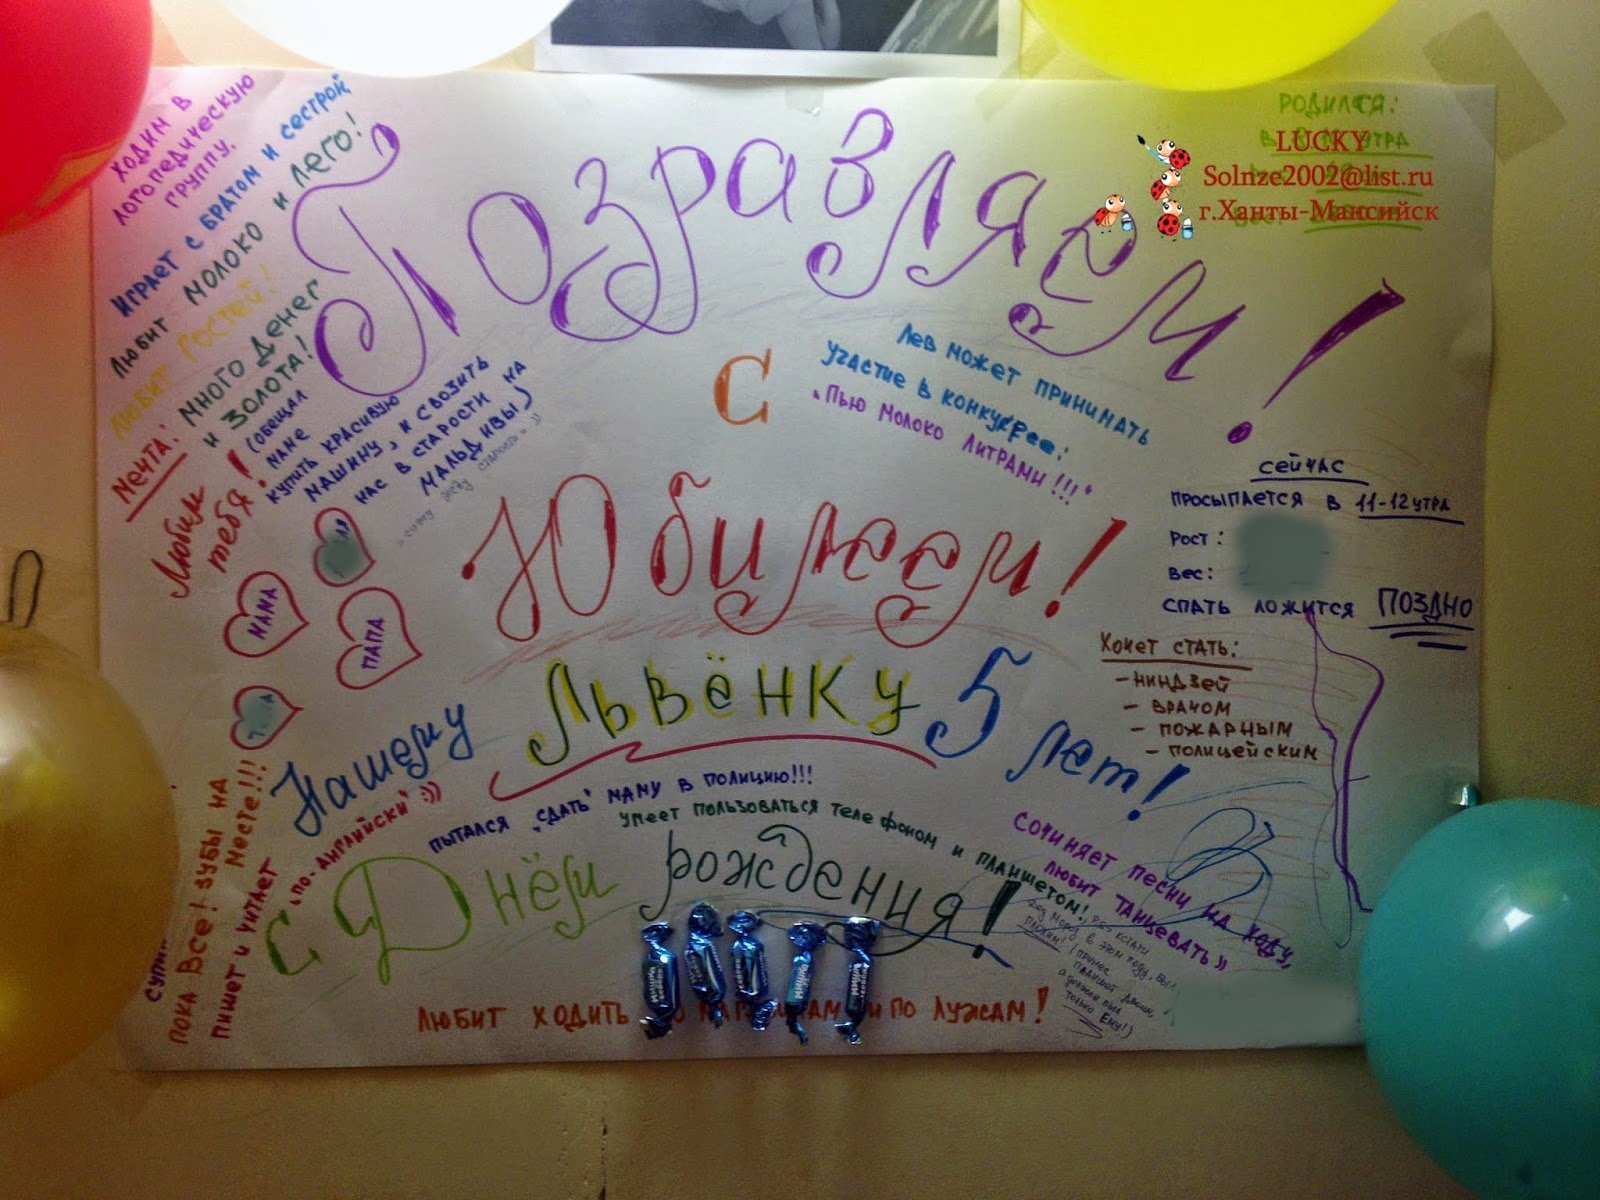 ХОДИМ В
ЛОГОПЕДИЧЕСКУЮ
ГРУППУ.
ИГРАЕТ С БРАТОМ И СЕСТРОЙ,
ЛЮБИТ МОЛОКО И ЛЕГО!
ЛЮБИТ ГОСТЕЙ!
МЕЧТА: МНОГО ДЕНЕГ
И ЗОЛОТА!
(ОБЕЩАЛ
МАМЕ
КУПИТЬ КРАСИВУЮ
МАШИНУ, И СВОЗИТЬ
НАС В СТАРОСТИ НА
МАЛЬДИВЫ)
жду старости
Любим
тебя!
МАМА
ПАПА
Позравляем!
с
Юбилеем!
Нашему
ЛЬВЁНКУ
5 лет!
с Днём рождения!
LUCKY
Solnze2002@list.ru
г.Ханты-Мансийск
РОДИЛСЯ:
УТРА
Лев может принимать
участие в конкурсе:
"Пью молоко литрами!!!"
СЕЙЧАС
ПРОСЫПАЕТСЯ В 11-12 УТРА
РОСТ:
ВЕС:
СПАТЬ ЛОЖИТСЯ ПОЗДНО
ХОЧЕТ СТАТЬ:
- НИНДЗЕЙ
- ВРАЧОМ
- ПОЖАРНЫМ
- ПОЛИЦЕЙСКИМ
ПЫТАЛСЯ "СДАТЬ" МАМУ В ПОЛИЦИЮ!!!
УМЕЕТ ПОЛЬЗОВАТЬСЯ ТЕЛЕФОНОМ И ПЛАНШЕТОМ!
СОЧИНЯЕТ ПЕСНИ НА ХОДУ,
ЛЮБИТ ТАНЦЕВАТЬ
Дед Мороз, кстати
в этом году, был
планшет двоим,
а должен был
только ЕМУ!)
ПОКА ВСЕ! ЗУБЫ НА
МЕСТЕ!!!
ПИШЕТ И ЧИТАЕТ
"ПО-АНГЛИЙСКИ" :))
ЛЮБИТ ХОДИТЬ И ПО ЛУЖАМ!